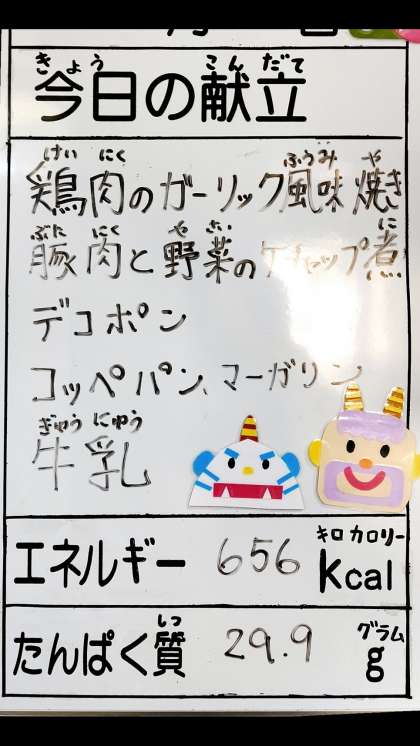 きょう こんだて
今日の献立
けいにく ふうみ や
鶏肉のガーリック風味焼き
ぶたにく やさい に
豚肉と野菜のケチャップ煮
デコポン
コッペパン、マーガリン
ぎゅうにゅう
牛乳
キロカロリー
エネルギー 656 kcal
しつ グラム
たんぱく質 29.9 g